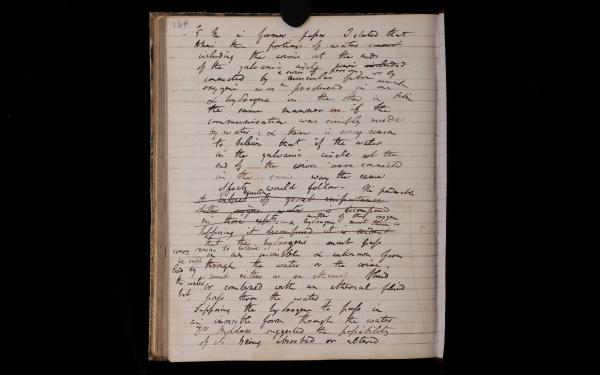 164
In a former paper I stated that
when the portions of water
including the wires at the ends
of the galvanic circle were
connected by a muscular fibre or by
oxygene was produced in one
& hydrogene in the other in
the same manner as if the
communication was visibly made
by water; & there is every reason
to believe that if the water
in the galvanic circle at the
end of the wires were connected
in the same way the same
effects would follow.
A subject of great importance
water is decomposed
in
supposing it decomposed it is evident
that the hydrogene must pass
in an invisible & unknown form
through the water or the wire
either as an ethereal fluid
or combined with an ethereal fluid
pass thro the water
Supposing the hydrogene to pass in
an invisible form through the water
Dr Beddoes suggested the possibility
of its being absorbed or altered
every reason to believe
the water
but